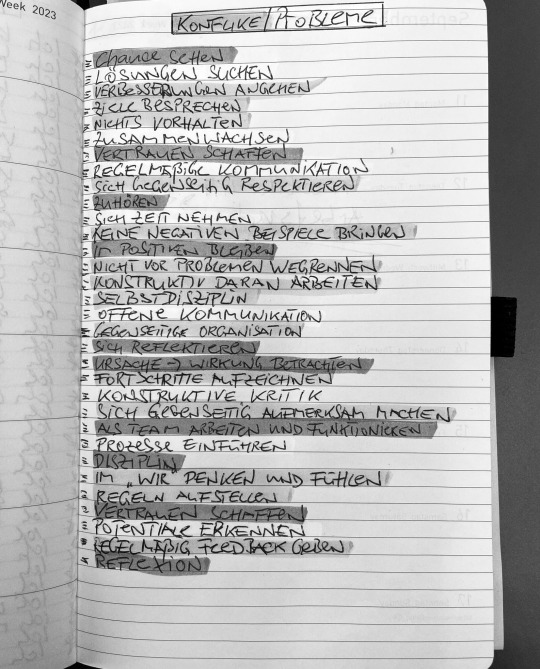 Week 2023
KONFLIKE/PROBLEME
CHANCE SEHEN
LÖSUNGEN SUCHEN
VERBESSERUNGEN ANGEHEN
ZIELE BESPRECHEN
NICHTS VORHALTEN
ZUSAMMENWACHSEN
VERTRAUEN SCHAFFEN
REGELMÄßIGE KOMMUNIKATION
SICH GEGENSEITIG RESPEKTIEREN
ZUHÖREN
SICH ZEIT NEHMEN
KEINE NEGATIVEN BEISPIELE BRINGEN
IM POSITIVEN BLEIBEN
NICHT VOR PROBLEMEN WEGRENNEN
KONSTRUKTIV DARAN ARBEITEN
SELBSTDISZIPLIN
OFFENE KOMMUNIKATION
GEGENSEITIGE ORGANISATION
SICH REFLEKTIEREN
URSACHE → WIRKUNG BETRACHTEN
FORTSCHRITTE AUFZEICHNEN
KONSTRUKTIVE KRITIK
SICH GEGENSEITIG AUFMERKSAM MACHEN
ALS TEAM ARBEITEN UND FUNKTIONIEREN
PROZESSE EINFÜHREN
DISZIPLIN
IM „WIR" DENKEN UND FÜHLEN
REGELN AUFSTELLEN
VERTRAUEN SCHAFFEN
POTENTIALE ERKENNEN
REGELMÄßIG FEEDBACK GEBEN
REFLEXION